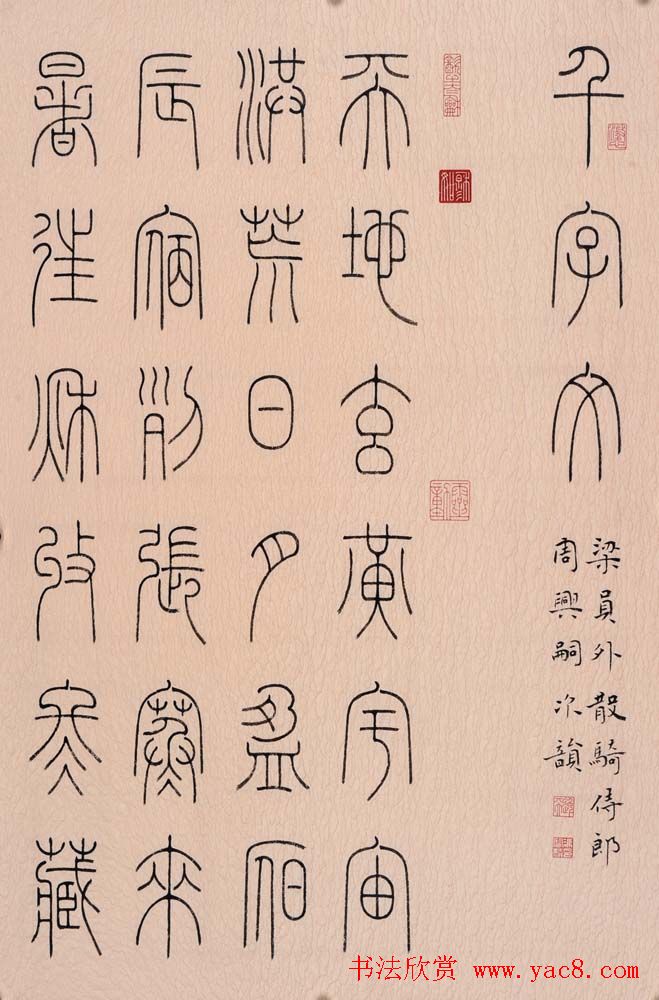 千字文
梁員外散騎侍郎
周興嗣次韻
天地玄黃宇宙
洪荒日月盈昃
辰宿列張寒來
暑往秋收冬藏
书法欣赏 www.yac8.com